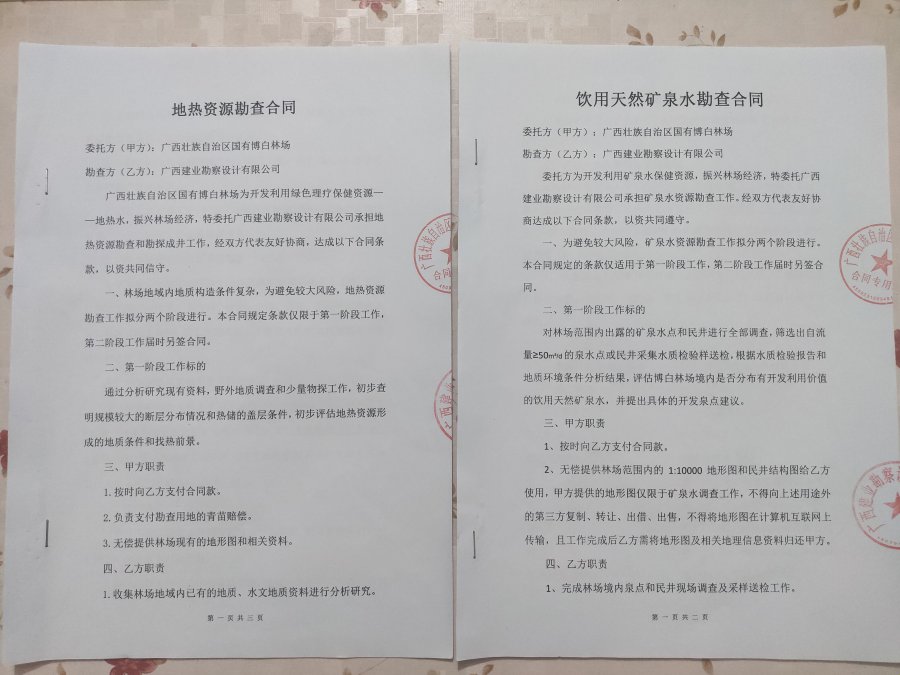 地热资源勘查合同
委托方（甲方）：广西壮族自治区国有博白林场
勘查方（乙方）：广西建业勘察设计有限公司
广西壮族自治区国有博白林场为开发利用绿色理疗保健资源—
—地热水，振兴林场经济，特委托广西建业勘察设计有限公司承担地
热资源勘查和勘探成井工作，经双方代表友好协商，达成以下合同条
款，以资共同信守。
一、林场地域内地质构造条件复杂，为避免较大风险，地热资源
勘查工作拟分两个阶段进行。本合同规定条款仅限于第一阶段工作，
第二阶段工作届时另签合同。
二、第一阶段工作标的
通过分析研究现有资料，野外地质调查和少量物探工作，初步查
明规模较大的断层分布情况和热储的盖层条件，初步评估地热资源形
成的地质条件和找热前景。
三、甲方职责
1.按时向乙方支付合同款。
2.负责支付勘查用地的青苗赔偿。
3.无偿提供林场现有的地形图和相关资料。
四、乙方职责
1.收集林场地域内已有的地质、水文地质资料进行分析研究。
第 一 页 共 三 页
广西壮族自治区
合同
广西建业
饮用天然矿泉水勘查合同
委托方（甲方）：广西壮族自治区国有博白林场
勘查方（乙方）：广西建业勘察设计有限公司
委托方为开发利用矿泉水保健资源，振兴林场经济，特委托广西
建业勘察设计有限公司承担矿泉水资源勘查工作。经双方代表友好协
商达成以下合同条款，以资共同遵守。
一、为避免较大风险，矿泉水资源勘查工作拟分两个阶段进行。
本合同规定的条款仅适用于第一阶段工作，第二阶段工作届时另签合
同。
二、第一阶段工作标的
对林场范围内出露的矿泉水点和民井进行全部调查，筛选出自流
量≥50m³/d 的泉水点或民井采集水质检验样送检，根据水质检验报告和
地质环境条件分析结果，评估博白林场境内是否分布有开发利用价值
的饮用天然矿泉水，并提出具体的开发泉点建议。
三、甲方职责
1、按时向乙方支付合同款。
2、无偿提供林场范围内的 1:10000 地形图和民井结构图给乙方
使用，甲方提供的地形图仅限于矿泉水调查工作，不得向上述用途外
的第三方复制、转让、出借、出售，不得将地形图在计算机互联网上
传输，且工作完成后乙方需将地形图及相关地理信息资料归还甲方。
四、乙方职责
1、完成林场境内泉点和民井现场调查及采样送检工作。
第 一 页 共 二 页
广西壮族自治区
合同专用
广西建业勘察